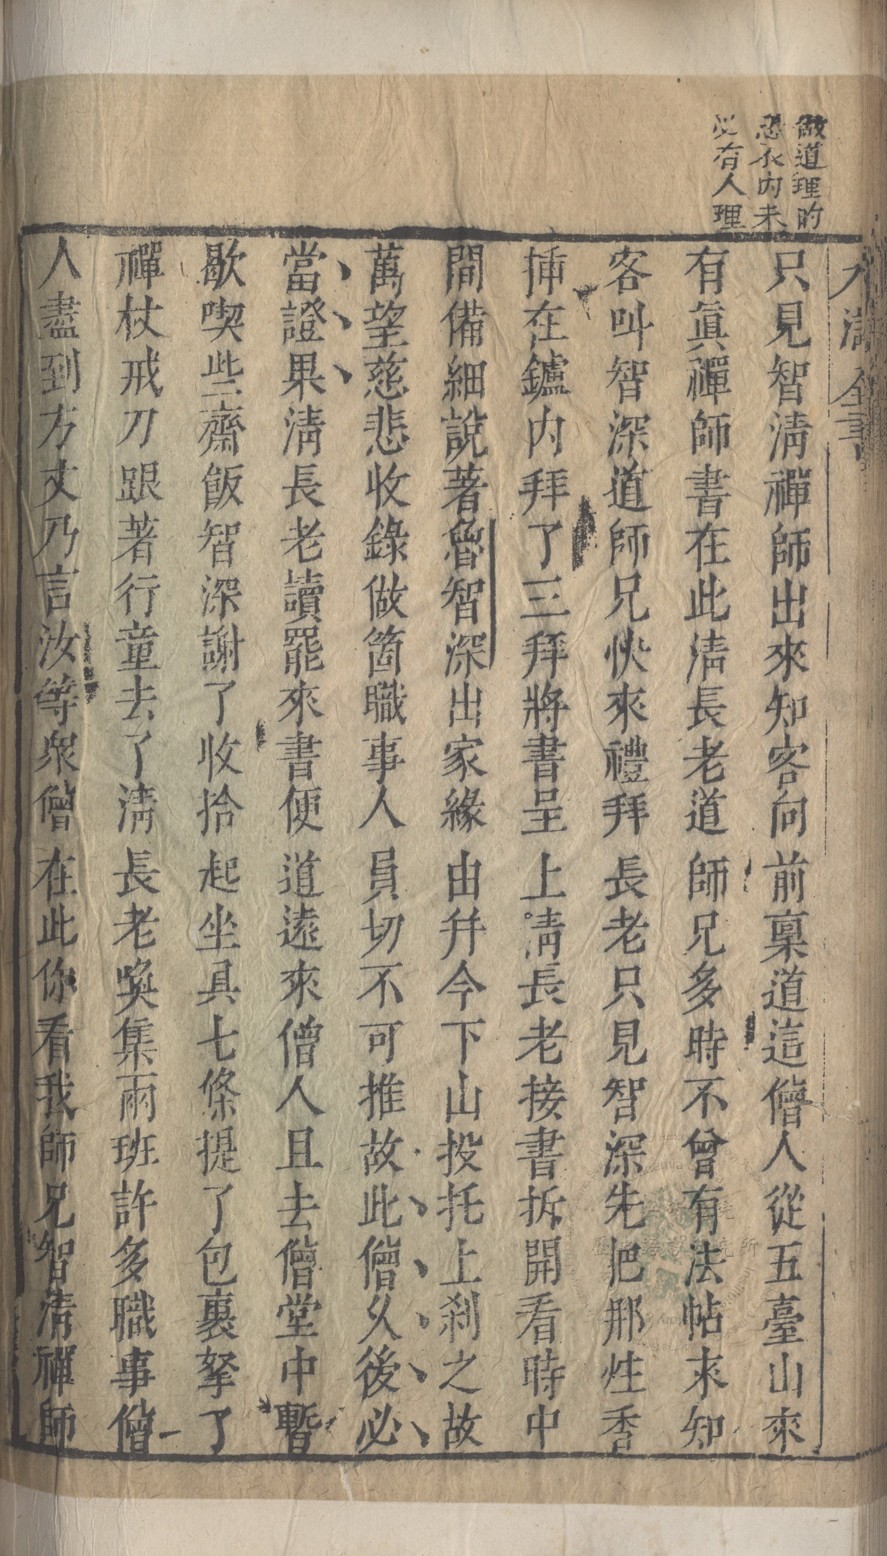 做道理的
恐衣內未
必有人理
水滸全書
只見智清禪師出來知客向前稟道這僧人從五臺山來
有眞禪師書在此清長老道師兄多時不曾有法帖來知
客叫智深道師兄快來禮拜長老只見智深先把那炷香
揷在鑪內拜了三拜將書呈上清長老接書拆開看時中
間備細說著魯智深出家緣由幷今下山投托上刹之故
萬望慈悲收錄做箇職事人員切不可推故此僧久後必
當證果清長老讀罷來書便道遠來僧人且去僧堂中暫
歇喫些齋飯智深謝了收拾起坐具七條提了包裹拏了
禪杖戒刀跟著行童去了清長老喚集兩班許多職事僧
人盡到方丈乃言汝等衆僧在此你看我師兄智清禪師